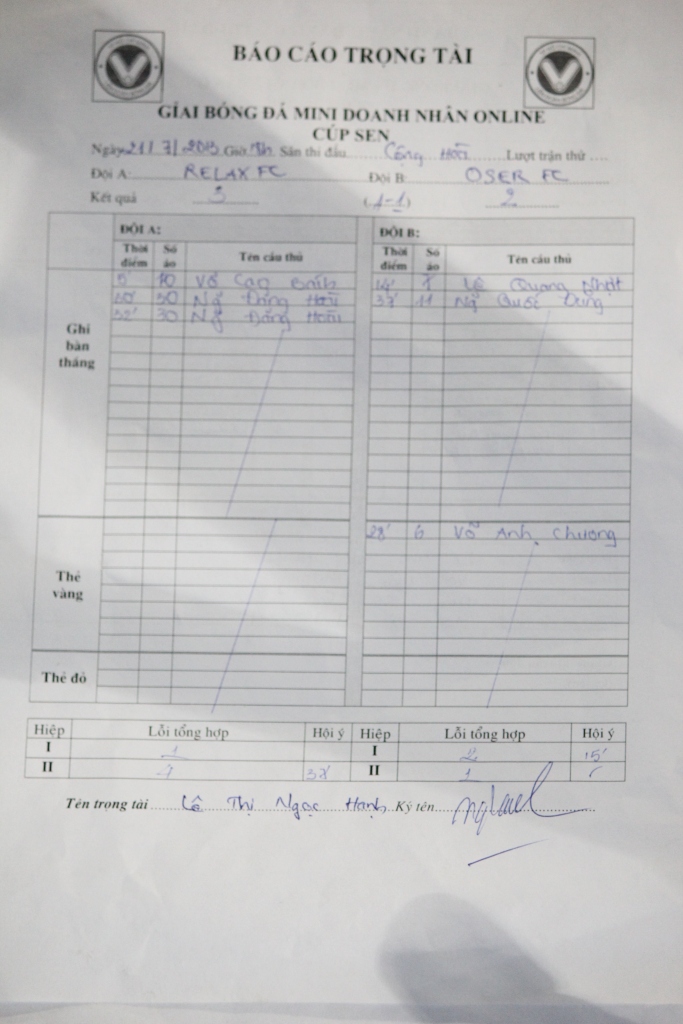 BÁO CÁO TRỌNG TÀI
GIẢI BÓNG ĐÁ MINI DOANH NHÂN ONLINE
CÚP SEN
Ngày 21/7/2013 Giờ Sân thi đấu Cộng Hoà Lượt trận thứ
Đội A: RELAX FC Đội B: OSER FC
Kết quả 3 (1-1) 2
ĐỘI A: ĐỘI B:
Thời điểm Số áo Tên cầu thủ Thời điểm Số áo Tên cầu thủ
Ghi bàn thắng
5' 10 Võ Cao 14' 1 Lê Quang Nhật
20' 30 Ng Đăng Hoài 37' 11 Ng Quốc Dũng
32' 30 Ng Đăng Hoài
Thẻ vàng
28' 6 Võ Anh Chương
Thẻ đỏ
Hiệp Lỗi tổng hợp Hội ý Hiệp Lỗi tổng hợp Hội ý
I 1 I 2 15'
II 37' II 1
Tên trọng tài Lê Thị Ngọc Hạnh Ký tên